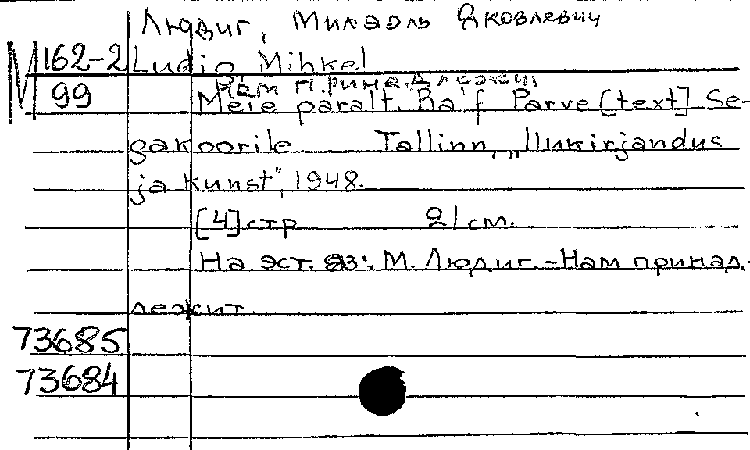 Людиг, Михаэль Яковлевич
М 162-2 Ludig Mihkel
Нам принадлежит
99 Meie päralt. Ralf Parve [text] Se-
gakoorile Tallinn, „Ilukirjandus
ja Kunst", 1948.
[4] стр 21 см.
На эст. яз: М. Людиг. - Нам принад-
лежит
73685
73684